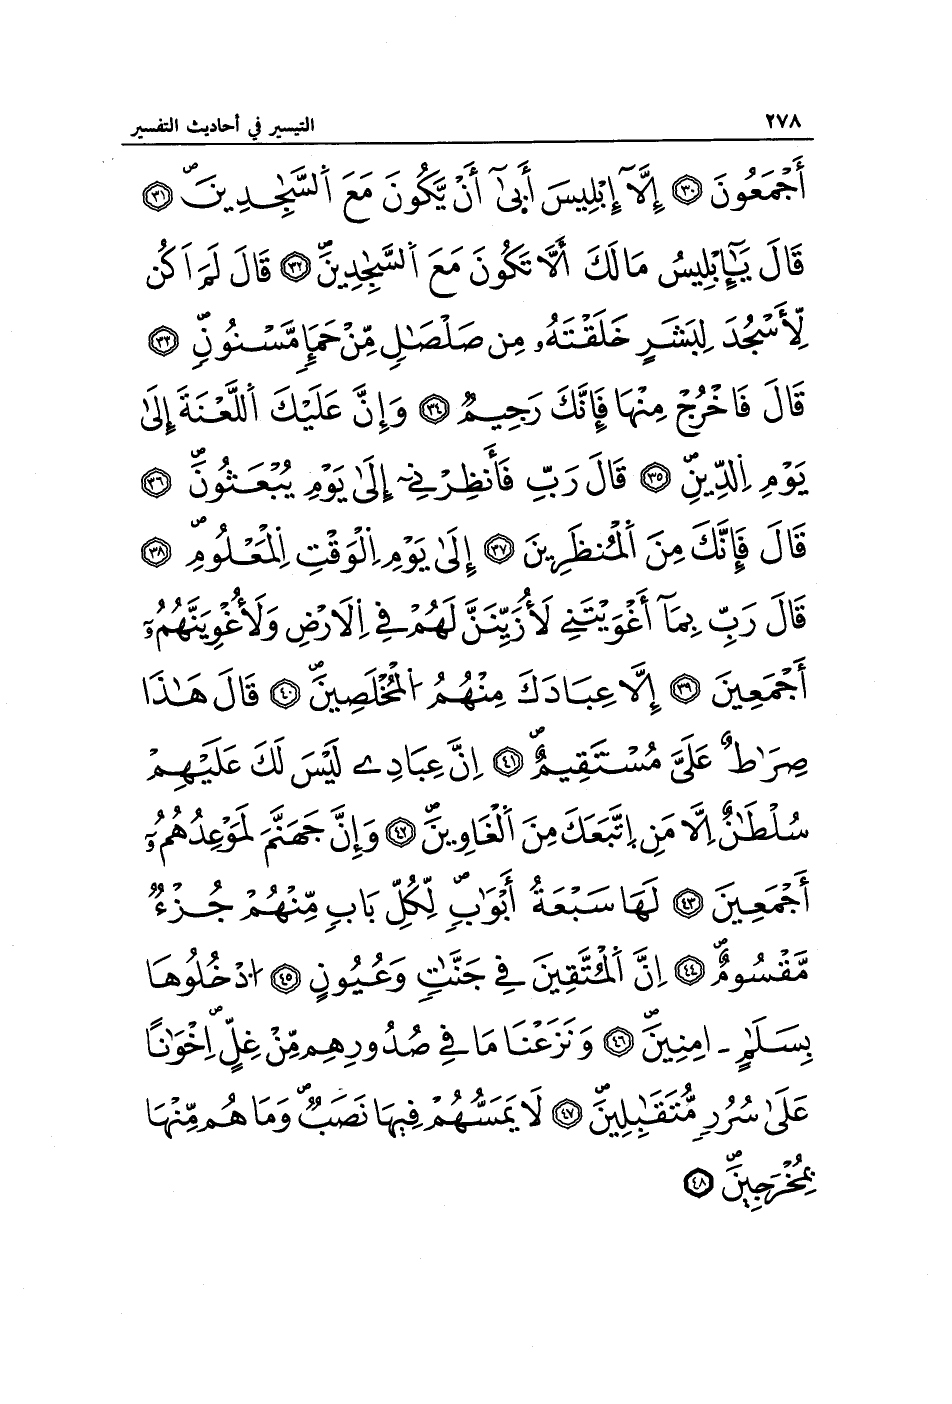 ٢٧٨ التيسير في أحاديث التفسير
أَجْمَعُونَ ﴿٣٠﴾ إِلَّآ إِبْلِيسَ أَبىٰٓ أَنْ يَّكُونَ مَعَ اَ۬لسَّٰجِدِينَۖ ﴿٣١﴾
قَالَ يَٰٓإِبْلِيسُ مَا لَكَ أَلَّا تَكُونَ مَعَ اَ۬لسَّٰجِدِينَۖ ﴿٣٢﴾ قَالَ لَمَ اَكُن
لِّأَسْجُدَ لِبَشَرٍ خَلَقْتَهُۥ مِن صَلْصَٰلٍ مِّنْ حَمَإٍ مَّسْنُونٍۖ ﴿٣٣﴾
قَالَ فَاخْرُجْ مِنْهَا فَإِنَّكَ رَجِيمٌ ﴿٣٤﴾ وَإِنَّ عَلَيْكَ اَ۬للَّعْنَةَ إِلَىٰ
يَوْمِ اِ۬لدِّينِۖ ﴿٣٥﴾ قَالَ رَبِّ فَأَنظِرْنِےٓ إِلَىٰ يَوْمِ يُبْعَثُونَۖ ﴿٣٦﴾
قَالَ فَإِنَّكَ مِنَ اَ۬لْمُنظَرِينَ ﴿٣٧﴾ إِلَىٰ يَوْمِ اِ۬لْوَقْتِ اِ۬لْمَعْلُومِۖ ﴿٣٨﴾
قَالَ رَبِّ بِمَآ أَغْوَيْتَنِے لَأُزَيِّنَنَّ لَهُمْ فِے اِ۬لَارْضِ وَلَأُغْوِيَنَّهُمُۥٓ
أَجْمَعِينَ ﴿٣٩﴾ إِلَّا عِبَادَكَ مِنْهُمُ اُ۬لْمُخْلَصِينَۖ ﴿٤٠﴾ قَالَ هَٰذَا
صِرَٰطٌ عَلَيَّ مُسْتَقِيمٌۖ ﴿٤١﴾ اِنَّ عِبَادِے لَيْسَ لَكَ عَلَيْهِمْ
سُلْطَٰنٌ اِلَّا مَنِ اِ۪تَّبَعَكَ مِنَ اَ۬لْغَاوِينَۖ ﴿٤٢﴾ وَإِنَّ جَهَنَّمَ لَمَوْعِدُهُمُۥٓ
أَجْمَعِينَ ﴿٤٣﴾ لَهَا سَبْعَةُ أَبْوَٰبٖۖ لِّكُلِّ بَابٍ مِّنْهُمْ جُزْءٌ
مَّقْسُومٌۖ ﴿٤٤﴾ اِنَّ اَ۬لْمُتَّقِينَ فِے جَنَّٰتٍ وَعُيُونٍ ﴿٤٥﴾ اُ۟دْخُلُوهَا
بِسَلَٰمٍ ـ امِنِينَۖ ﴿٤٦﴾ وَنَزَعْنَا مَا فِے صُدُورِهِم مِّنْ غِلٍّۖ اِخْوَٰناً
عَلَىٰ سُرُرٍ مُّتَقَٰبِلِينَۖ ﴿٤٧﴾ لَا يَمَسُّهُمْ فِيهَا نَصَبٌۖ وَمَا هُم مِّنْهَا
بِمُخْرَجِينَۖ ﴿٤٨﴾